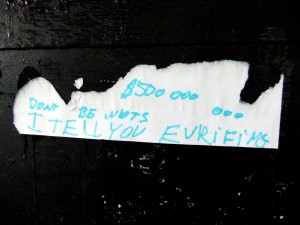 $500 000 000
DONT BE NUTS
I TELL YOU EVRIFING